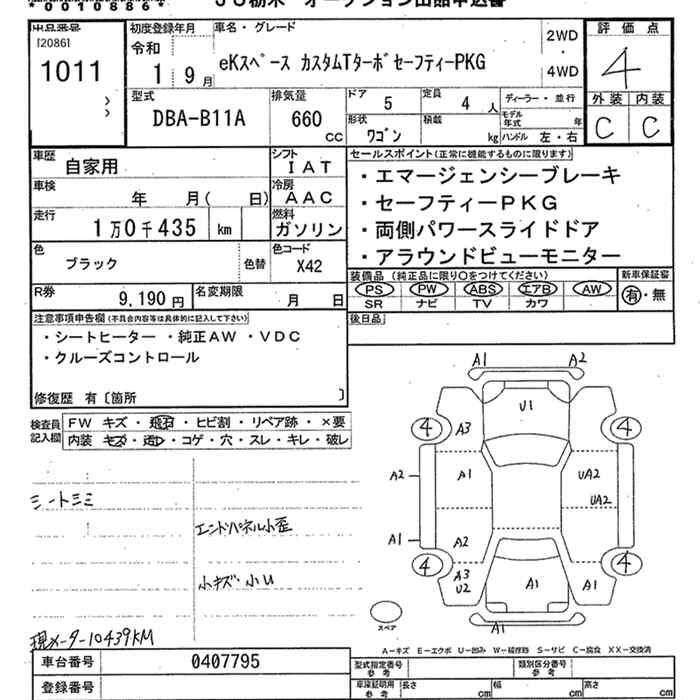 *0010886*
JU栃木 オークション出品申込書
出品番号
120861
1011
初度登録年月
令和
1 9月
車名・グレード
eKスペース カスタムTターボセーフティーPKG
2WD
・
4WD
評価点
4
外装 内装
C C
型式
DBA-B11A
排気量
660
cc
ドア 5
定員 4 人
形状 ワゴン
積載 kg
ディーラー・並行
モデル年式 年
ハンドル 左・右
車歴
自家用
シフト
IAT
車検
年 月( 日)
冷房
AAC
走行
1万0千435 km
燃料
ガソリン
色
ブラック
色替
色コード
X42
R券
9,190 円
名変期限
月 日
セールスポイント(正常に機能するものに限ります)
・エマージェンシーブレーキ
・セーフティーPKG
・両側パワースライドドア
・アラウンドビューモニター
装備品 (純正品に限り○をつけてください)
PS PW ABS エアB AW
SR ナビ TV カワ
新車保証書
有・無
後日品
注意事項申告欄(不具合内容等は具体的に記入して下さい)
・シートヒーター ・純正AW ・VDC
・クルーズコントロール
修復歴 有〔箇所 〕
検査員
記入欄
FW キズ・飛石・ヒビ割・リペア跡・×要
内装 キズ・汚レ・コゲ・穴・スレ・キレ・破レ
シートシミ
エンドパネル小歪
小キズ・小U
現メーター10439KM
A1 A2
U1
4 4
A3
A2 A1 UA2
UA2
A1 A2
4 4
A3
U2 A1 A1
A1
スペア
A―キズ E―エクボ U―凹み W―補修跡 S―サビ C―腐食 XX―交換済
車台番号 0407795
登録番号
型式指定番号
参考
類別区分番号
参考
車庫証明用
参考
長さ cm 幅 cm 高さ cm